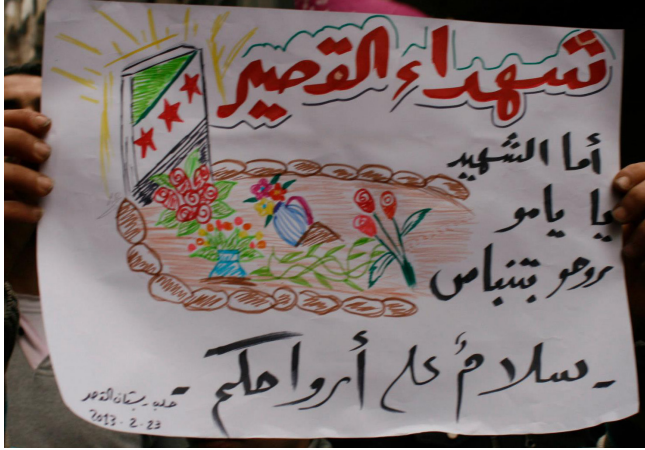 شهداء القصير
أما الشهيد
يا يامو
روحو بتنباس
- سلامٌ على أرواحكم -
حلب - بستان القصر
2013 - 2 - 23